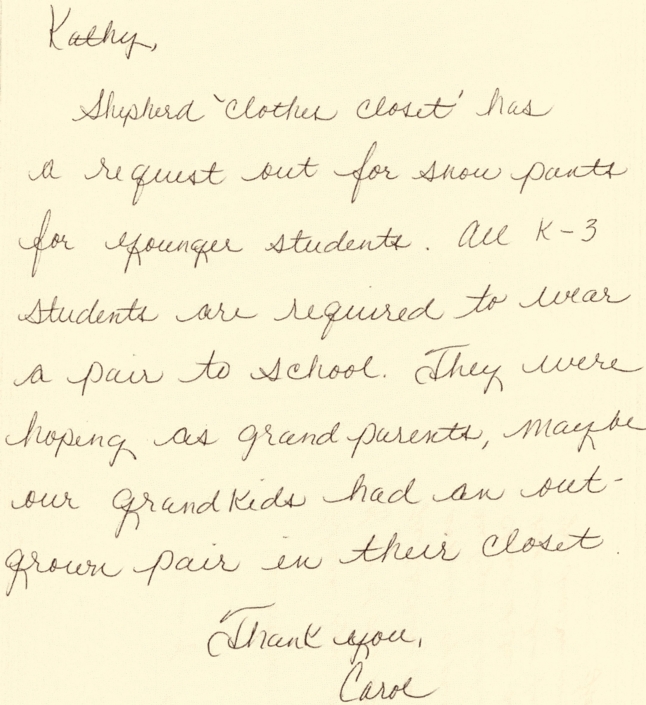 Kathy,
Shepherd 'clothes closet' has
a request out for snow pants
for younger students. All K-3
students are required to wear
a pair to school. They were
hoping as grandparents, maybe
our grandkids had an out-
grown pair in their closet.
Thank you,
Carol